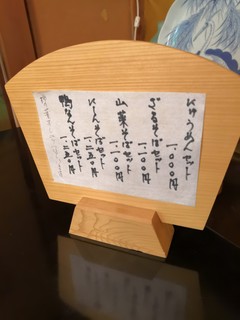 にゅうめんセット
一、〇〇〇円
ざるそばセット
一、一〇〇円
山菜そばセット
一、一〇〇円
にしんそばセット
一、三五〇円
鴨なんそばセット
一、三五〇円